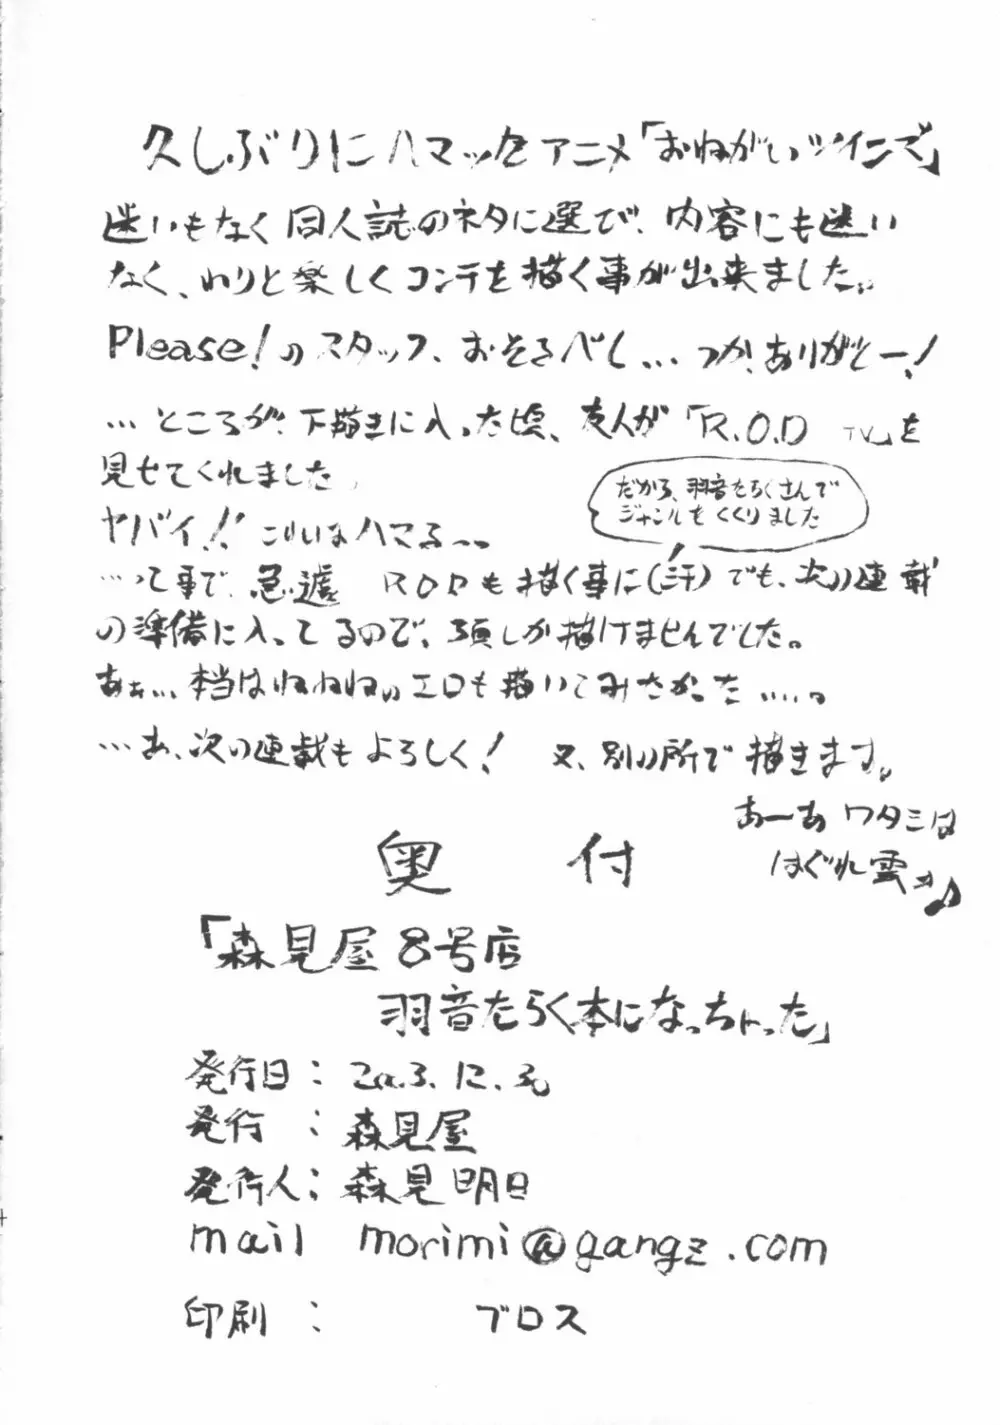 久しぶりにハマッたアニメ「おねがいツインズ」
迷いもなく同人誌のネタに選び、内容にも迷い
なく、わりと楽しくコンテを描く事が出来ました。
Please!のスタッフ、おそるべし…つか、ありがとー!
…ところが、下描きに入った頃、友人が「R.O.D TV」を
見せてくれました。
だから、羽音たらくさんで
ジャンルをくくりました
ヤバイ!! こりはハマるっっ
…って事で、急遽 RODも描く事に(汗)でも、次の連載
の準備に入ってるので、3頁しか描けませんでした。
あぁ…本当はねねねのエロも描いてみたかった……。
…あ、次の連載もよろしく! 又、別の所で描きます。
あーあ ワタミは
はぐれ雲ォ♪
奥付
「森見屋8号店
羽音たらく本になっちゃった」
発行日:2003.12.30
発行:森見屋
発行人:森見明日
mail morimi@gangz.com
印刷: ブロス